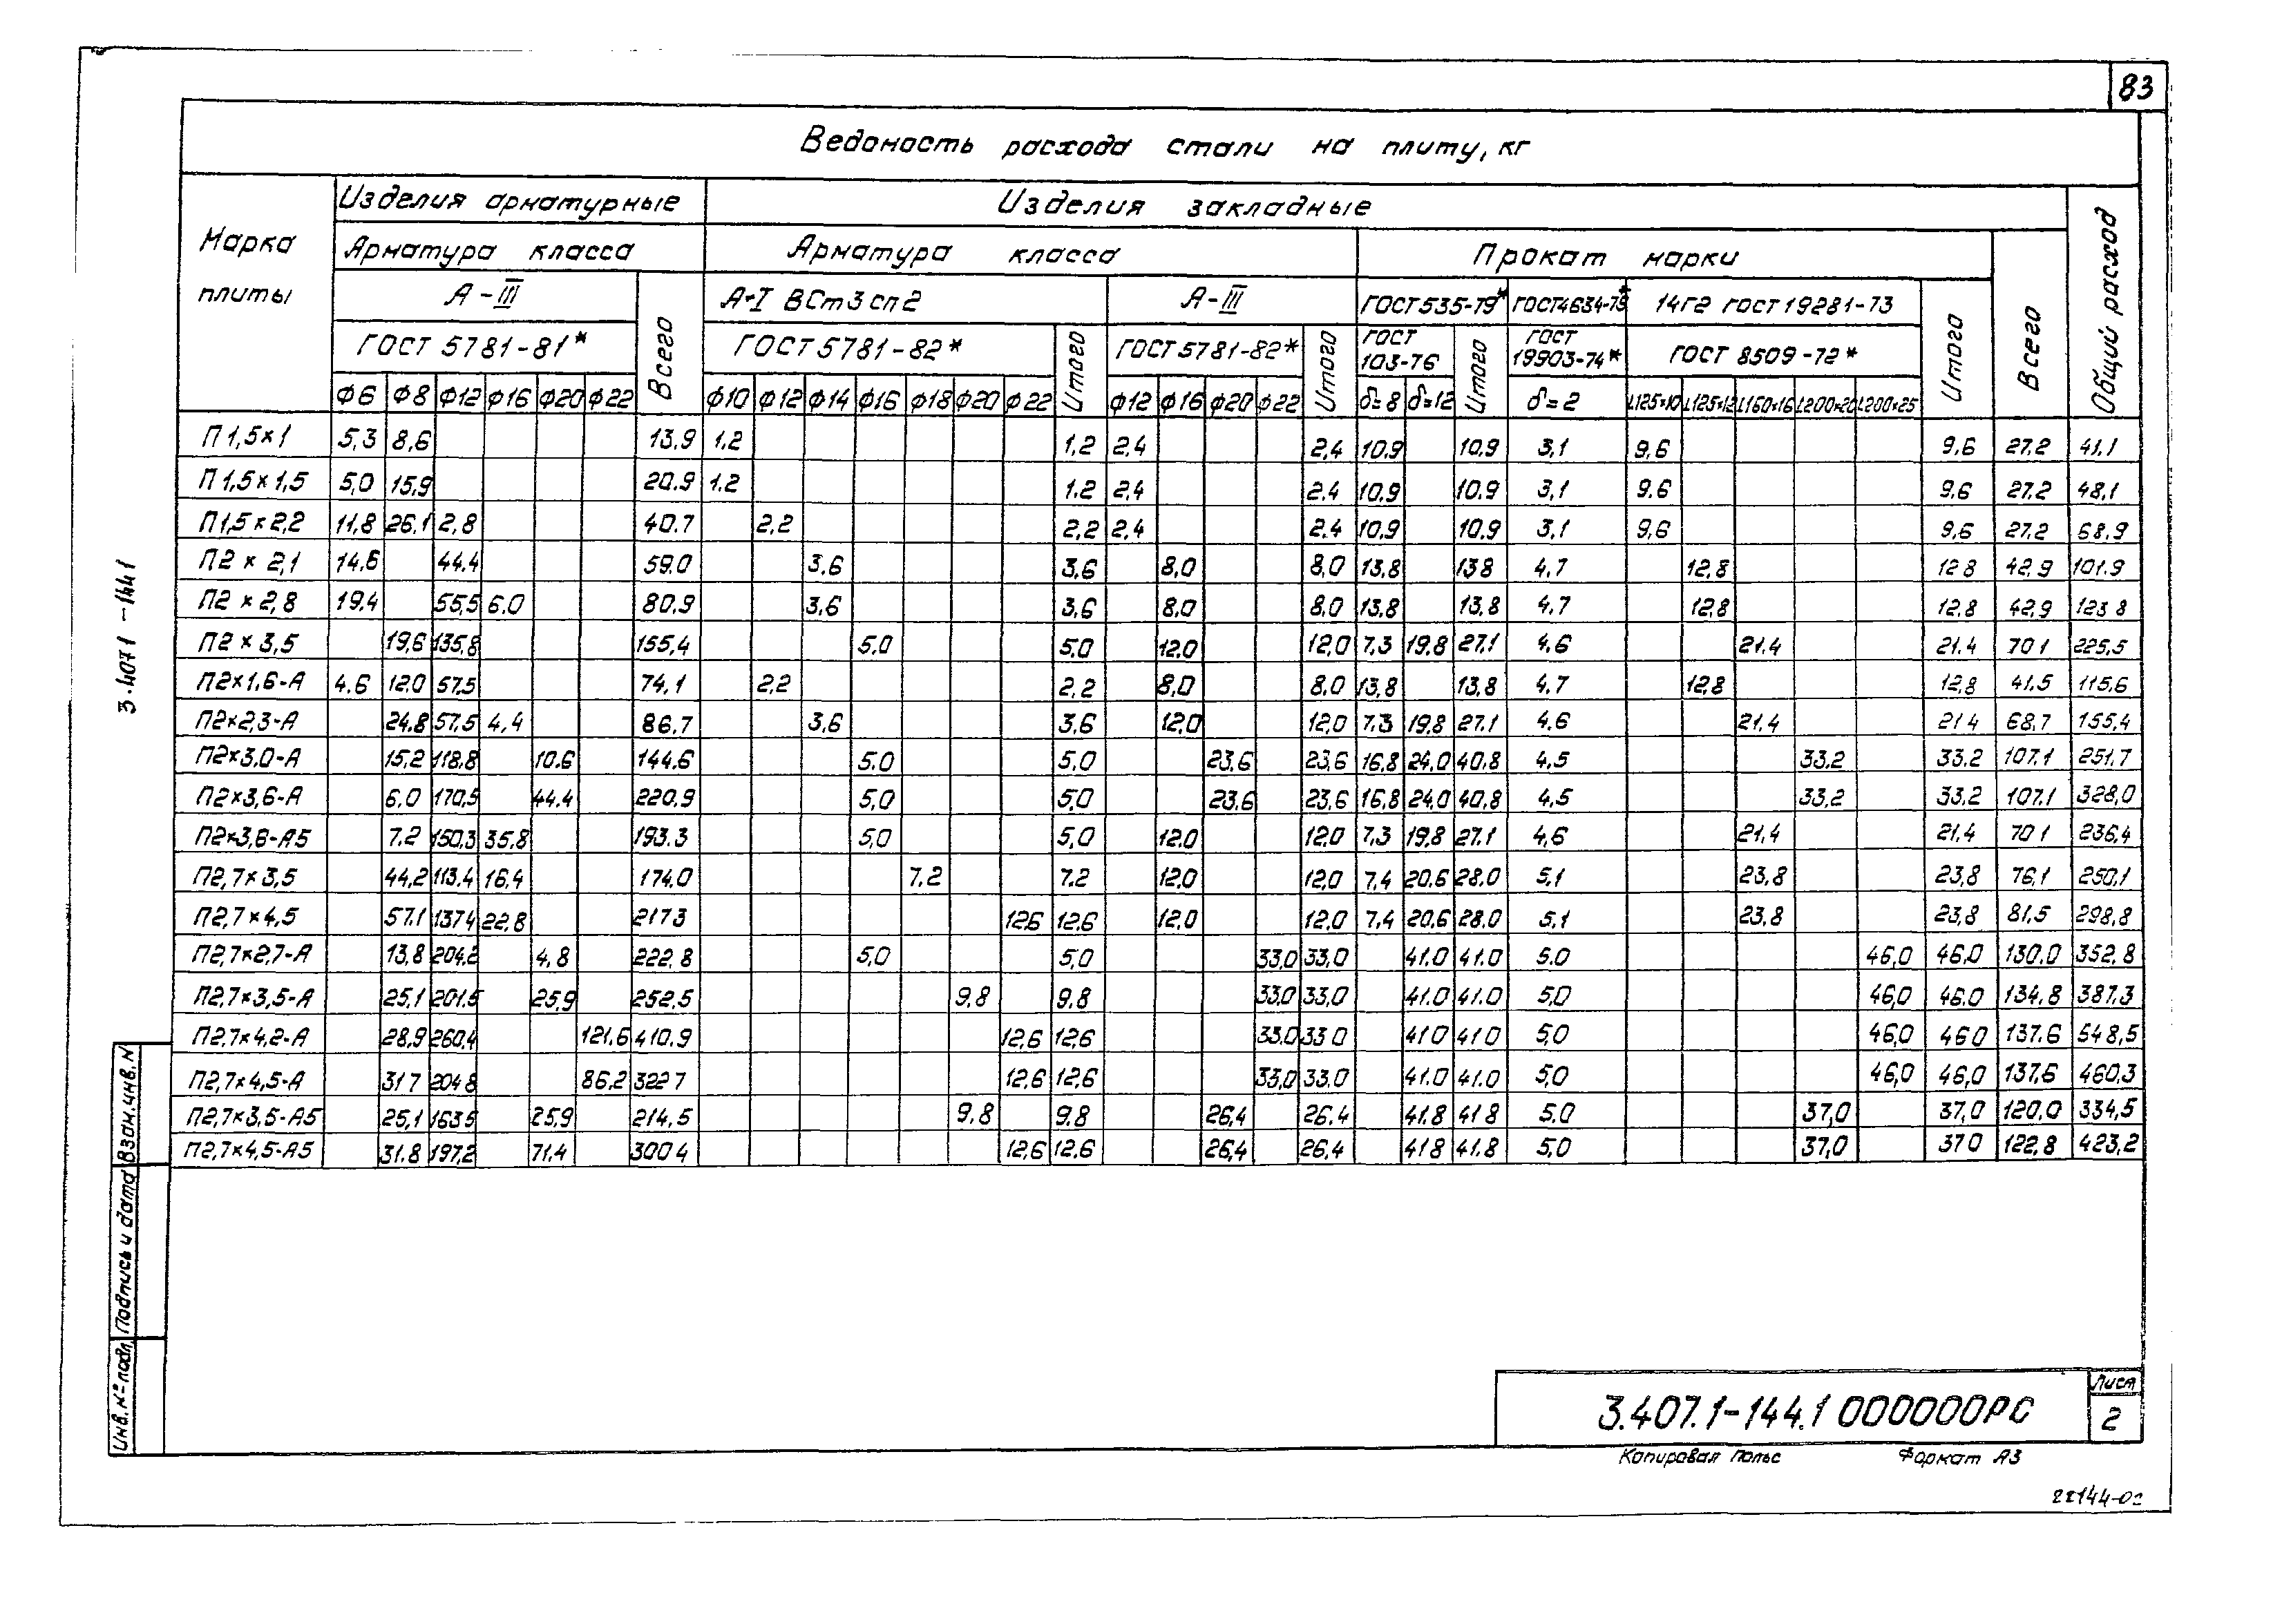 83
Ведомость расхода стали на плиту, кг
Марка плиты
Изделия арматурные
Изделия закладные
Общий расход
Арматура класса
Арматура класса
Прокат марки
Всего
А-III
Всего
А-I ВСт3сп2
А-III
ГОСТ535-79*
ГОСТ4634-79*
14Г2 ГОСТ19281-73
Итого
ГОСТ 5781-81*
ГОСТ5781-82*
Итого
ГОСТ5781-82*
Итого
ГОСТ 103-76
Итого
ГОСТ 19903-74*
ГОСТ 8509-72*
ф6 ф8 ф12 ф16 ф20 ф22 ф10 ф12 ф14 ф16 ф18 ф20 ф22 ф12 ф16 ф20 ф22 δ=8 δ=12 δ=2 L125×10 L125×12 L160×16 L200×20 L200×25
П1,5×1 5,3 8,6 13,9 1.2 1,2 2,4 2,4 10,9 10,9 3,1 9,6 9,6 27,2 41,1
П1,5×1,5 5,0 15,9 20.9 1.2 1.2 2,4 2.4 10,9 10.9 3,1 9,6 9.6 27.2 48,1
П1,5×2,2 11,8 26,1 2,8 40.7 2,2 2,2 2,4 2.4 10,9 10,9 3,1 9,6 9,6 27.2 68,9
П2 × 2,1 14,6 44.4 59.0 3.6 3,6 8,0 8,0 13,8 138 4,7 12,8 12 8 42,9 101.9
П2 × 2,8 19,4 55,5 6.0 80.9 3,6 3,6 8,0 8,0 13,8 13,8 4,7 12,8 12.8 42,9 123 8
П2 × 3,5 19,6 135,8 155,4 5,0 5.0 12.0 12,0 7,3 19,8 27,1 4,6 21.4 21.4 70 1 225,5
П2×1,6-А 4.6 12.0 57.5 74,1 2,2 2,2 8,0 8.0 13,8 13,8 4,7 12,8 12,8 41.5 115,6
П2×2,3-А 24,8 57,5 4,4 86,7 3,6 3,6 12,0 12,0 7.3 19,8 27.1 4.6 21,4 21 4 68,7 155,4
П2×3,0-А 15,2 118.8 10.6 144.6 5.0 5.0 23,6 23,6 16,8 24,0 40,8 4,5 33.2 33.2 107.1 251.7
П2×3,6-А 6.0 170,5 44.4 220.9 5,0 5,0 23,6 23,6 16,8 24,0 40,8 4,5 33,2 33,2 107,1 328,0
П2×3,6-А5 7.2 150,3 35,8 193.3 5,0 5,0 12.0 12.0 7,3 19,8 27,1 4,6 21,4 21.4 70 1 236,4
П2,7×3,5 44,2 113.4 16,4 174.0 7,2 7.2 12,0 12,0 7,4 20,6 28.0 5,1 23,8 23,8 76,1 250,1
П2,7×4,5 57.1 1374 22,8 2173 12,6 12,6 12,0 12,0 7,4 20,6 28.0 5,1 23,8 23,8 81.5 298,8
П2,7×2,7-А 13,8 204,2 4,8 222,8 5,0 5,0 33,0 33,0 41.0 41.0 5.0 46,0 46,0 130.0 352,8
П2,7×3,5-А 25,1 201.5 25,9 252,5 9.8 9.8 33,0 33,0 41.0 41.0 5,0 46,0 46.0 134,8 387.3
П2,7×4,2-А 28,9 260,4 121.6 410.9 12,6 12,6 33,0 33 0 41 0 41 0 5,0 46,0 46 0 137.6 548,5
П2,7×4,5-А 31 7 204 8 86,2 322 7 12.6 12,6 33,0 33,0 41.0 41.0 5,0 46,0 46,0 137,6 460,3
П2,7×3,5-А5 25,1 163 5 25,9 214,5 9.8 9.8 26,4 26.4 41.8 41 8 5.0 37,0 37,0 120,0 334,5
П2,7×4,5-А5 31.8 197,2 71.4 300 4 12,6 12.6 26,4 26,4 41 8 41.8 5,0 37,0 37 0 122,8 423,2
3.4071-1441
Взам.инв.N
Подпись и дата
Инв.№ подл.
3.407.1-144.1 000000РС
Лист
2
Копировал Формат А3